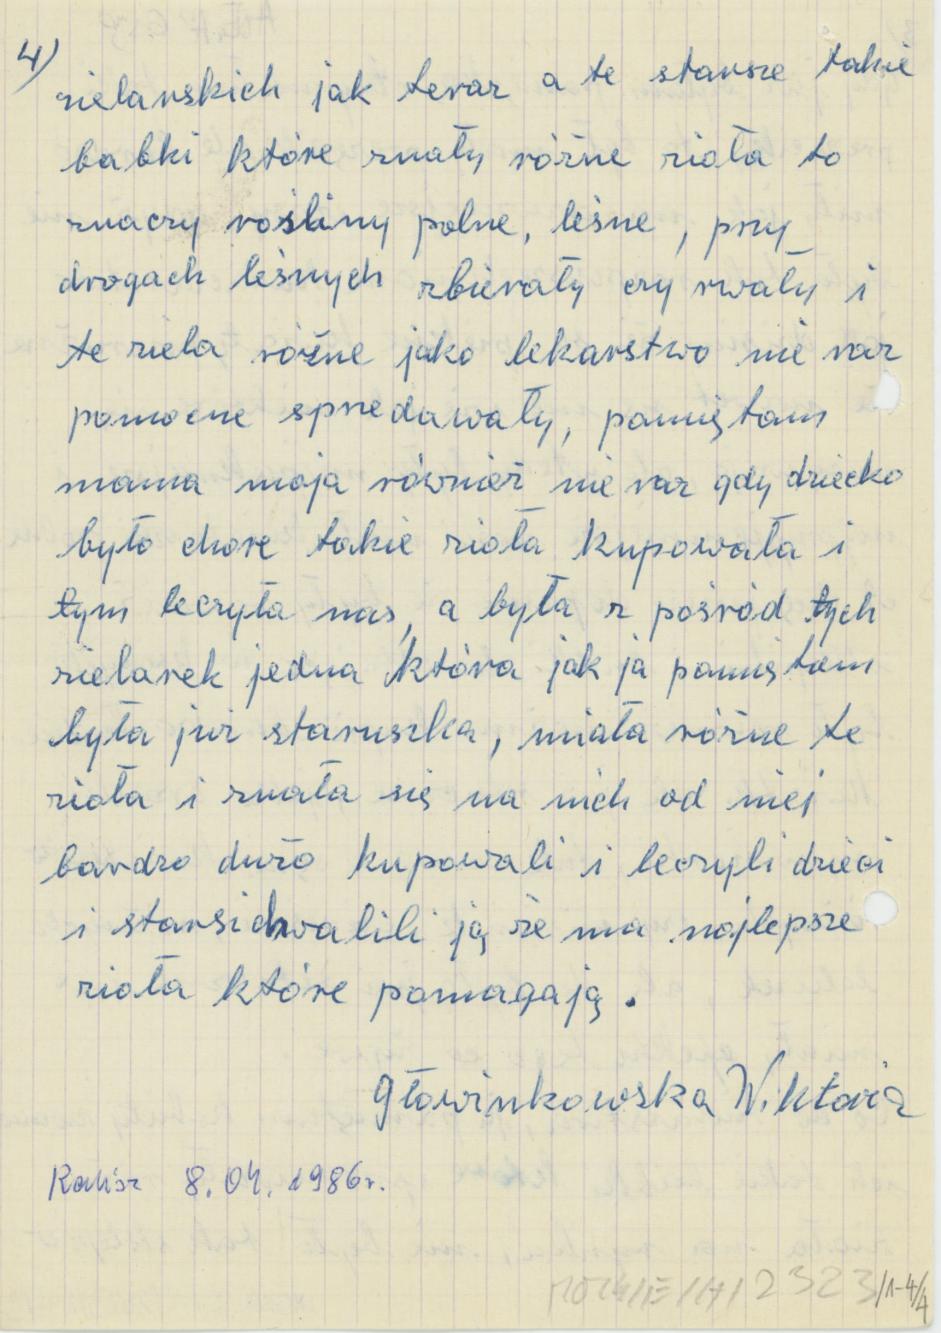 4)
zielarskich jak teraz a te starsze takie
babki które znały różne zioła to
znaczy rośliny polne, leśne, przy
drogach leśnych zbierały czy rwały i
te ziela różne jako lekarstwo nie raz
pomocne sprzedawały, pamiętam
mama moja również nie raz gdy dziecko
było chore takie zioła kupowała i
tym leczyła nas, a była z pośród tych
zielarek jedna która jak ja pamiętam
była już staruszka, miała różne te
zioła i znała się na nich od niej
bardzo dużo kupowali i leczyli dzieci
i starsi chwalili ją że ma najlepsze
zioła które pomagają.
Głowinkowska Wiktoria
Kalisz 8.04.1986r.
2323/1-4/4